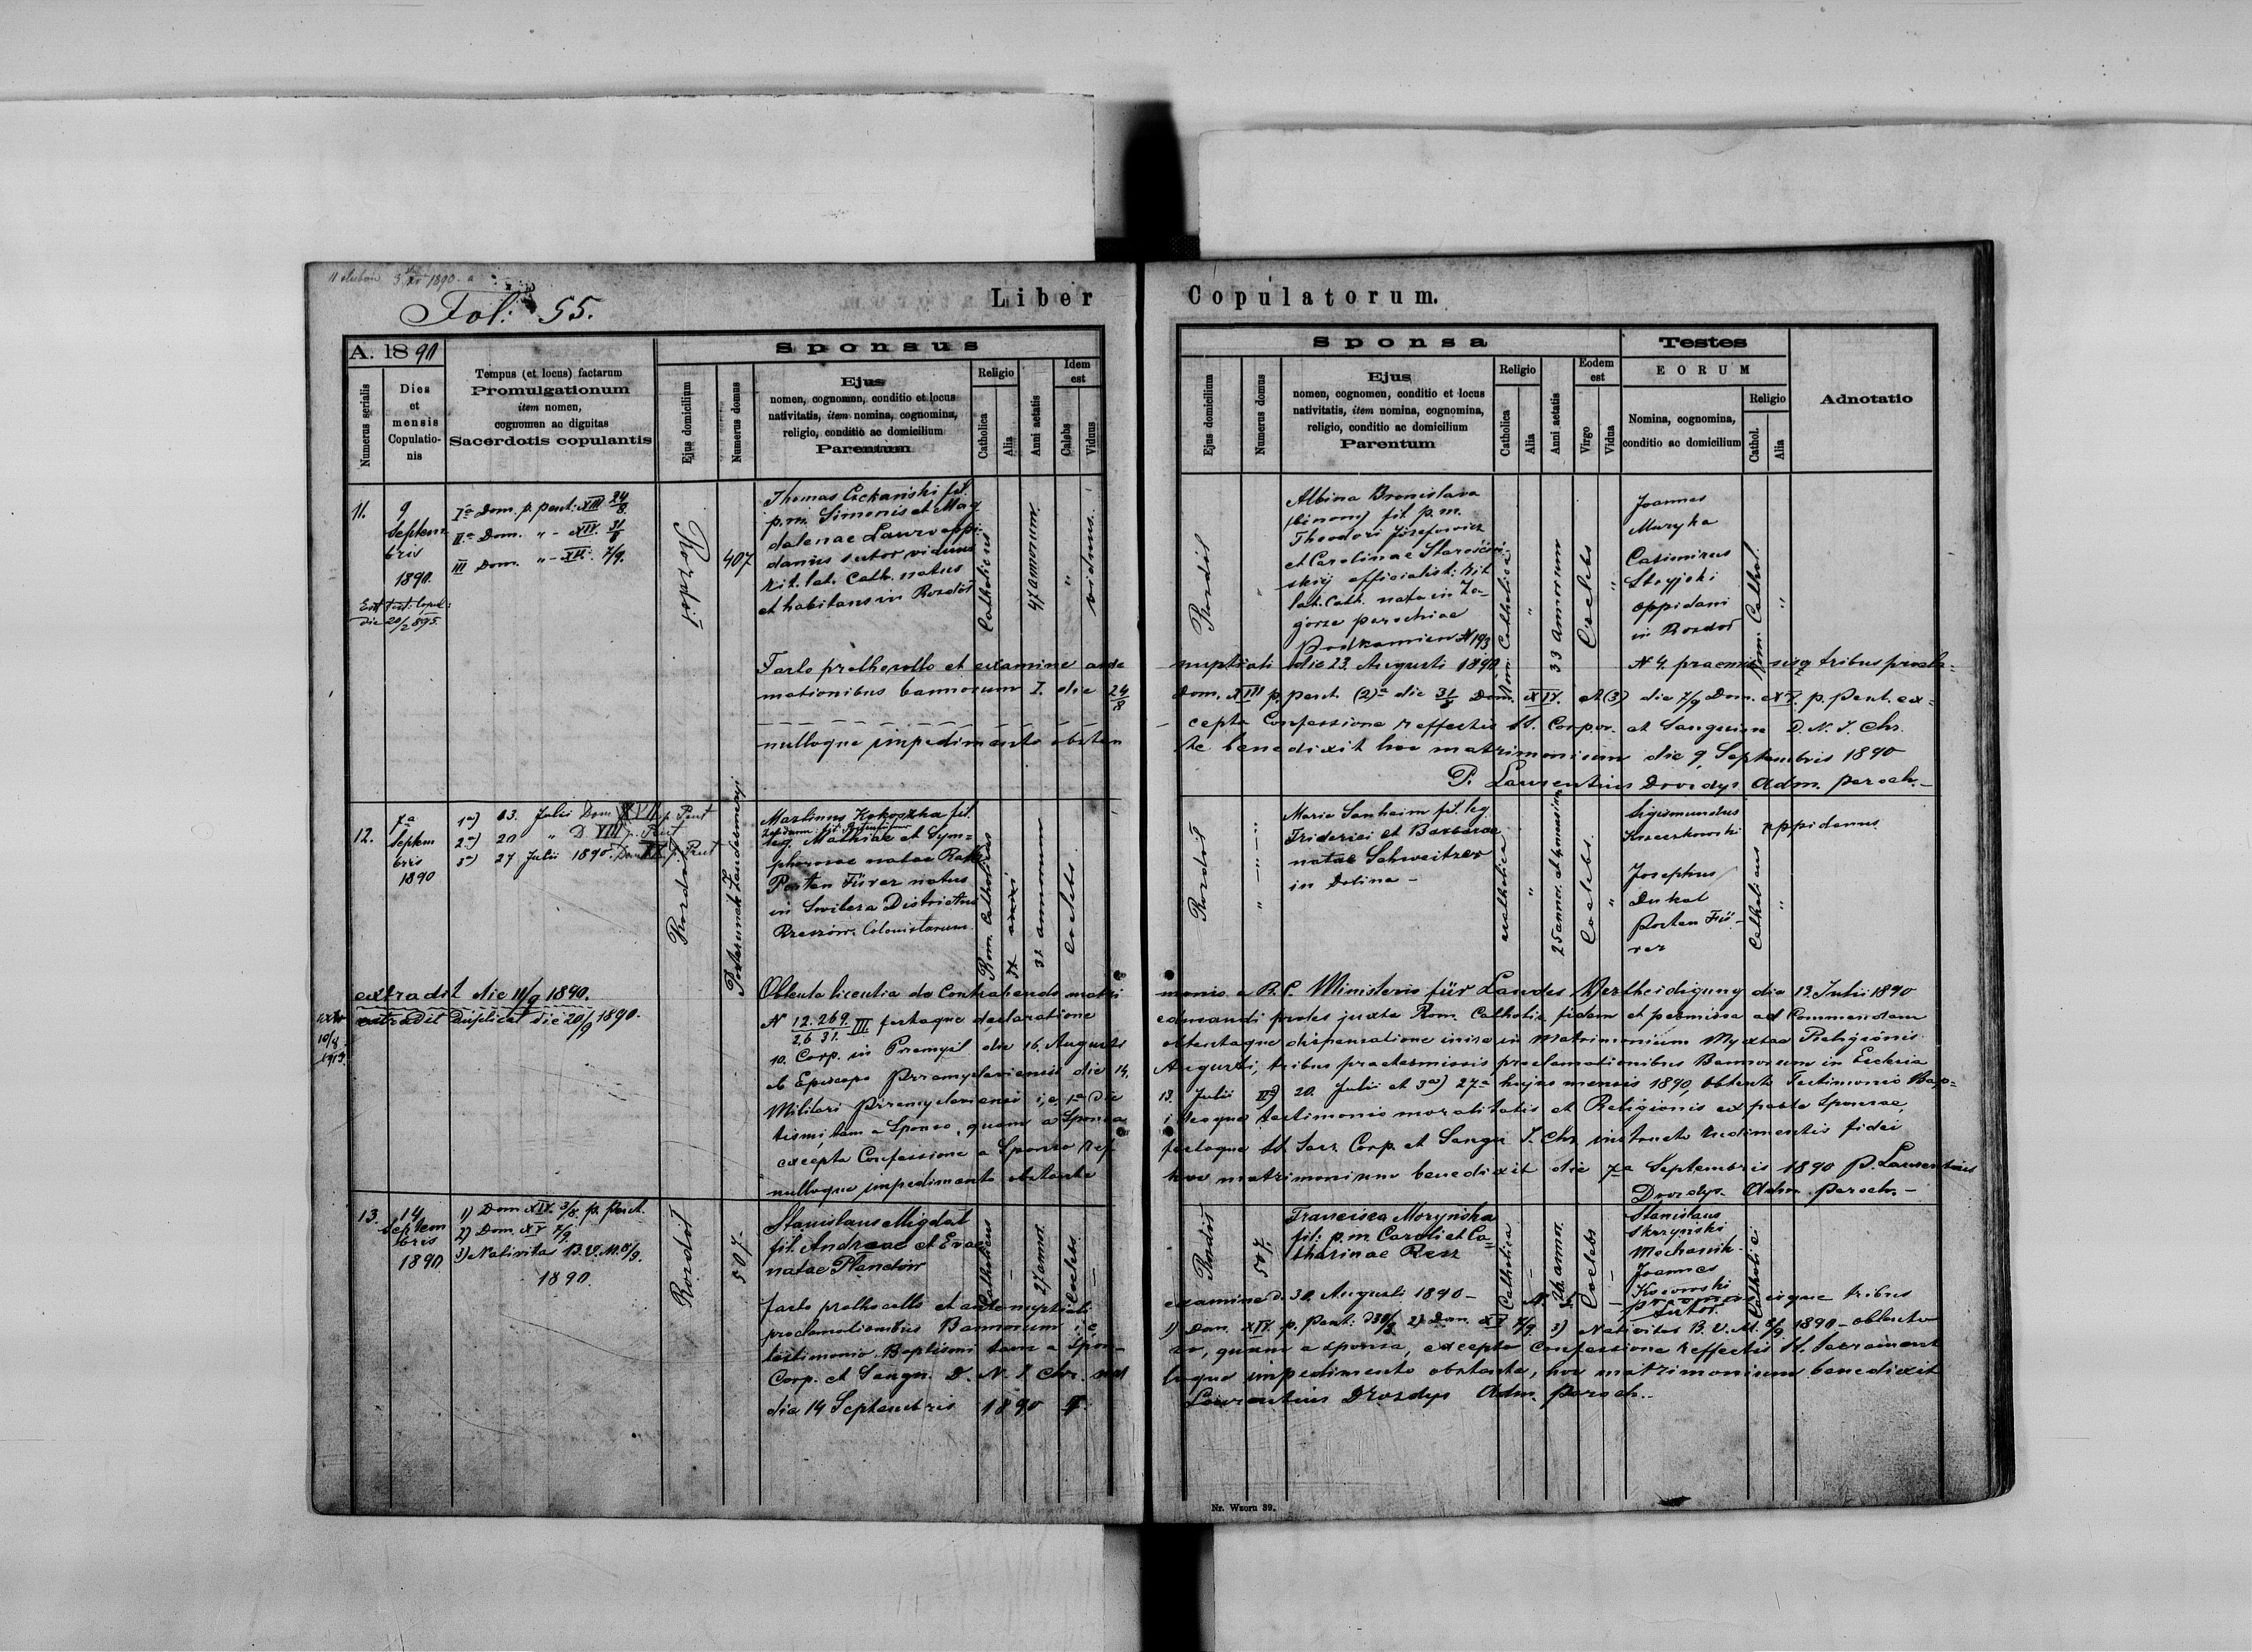 Fol: 55.
Liber Copulatorum.
A. 1890
Numerus serialis
Dies
et
mensis
Copulatio-
nis
Tempus (et locus) factarum
Promulgationum
item nomen,
cognomen ac dignitas
Sacerdotis copulantis
Sponsus
Ejus domicilium
Numerus domus
Ejus
nomen, cognomen, conditio et locus
nativitatis, item nomina, cognomina,
religio, conditio ac domicilium
Parentum
Religio
Catholica
Alia
Anni aetatis
Idem
est
Calebs
Viduus
Sponsa
Ejus domicilium
Numerus domus
Ejus
nomen, cognomen, conditio et locus
nativitatis, item nomina, cognomina,
religio, conditio ac domicilium
Parentum
Religio
Catholica
Alia
Anni aetatis
Eodem
est
Virgo
Vidua
Testes
EORUM
Nomina, cognomina,
conditio ac domicilium
Religio
Cathol.
Alia
Adnotatio
11.
9
Septem
bris
1890.
die 20/2 895.
Iª Dom. p. pent: XIII 24/8
IIª Dom. " - XIV. 31/8
III Dom. " - XV. 7/9.
Rozdół
407
Thomas fil.
p.m. Simonis et Mag
dalenae oppi
danus sutor viduus
rit. lat. Cath. natus
et habitans in Rozdół
Catholicus
47 annorum
"
viduus.
Rozdół
Albina Bronislava
(binom) fil. p.m.
Theodori Józefowicz
et Carolinae
officialist: rit
lat. Cath. nata in Za-
górze parochiae
Podkamien N 193
Rom. Catholica
"
33 annorum
Coelebs
"
Joannes
Muzyka
Casimirus
Stryjski
oppidani
in Rozdół
Rom. Cathol.
"
Facto prothocollo et examine ante nuptiali die 23. Augusti 1890 N 4. praemissisq tribus procla-
mationibus bannorum I. die 24/8 Dom. XIII p. pent. (2)ª die 31/8 Dom. XIV. et (3) die 7/9 Dom. XV. p. pent. ex-
cepta Confessione reffectis SS. Corpor. et Sanguine D. N. J. Chr.
nulloque impedimento obstan te benedixit hoc matrimonium die 9 Septembris 1890
P. Laurentius Drozdys Adm. paroch.-
12.
7ª
Septem
bris
1890
1ª) 13. Julii Dom p. Pent
2ª) 20 " D VIII p. Pent
3ª) 27 Julii 1890. Dom p. Pent
Rozdół
Martinus Kokoszka fil.
leg. Mathiae et Sym-
phorosae natae
Posten Fürer natus
in Districtus
Rzeszów. Colonistarum.
Rom. Catholicus
32 annorum
Coelebs
Rozdół
Maria Sanheim fil. leg.
Friderici et Barbarae
natae Schweitzer
in Dolina -
"
25 annor. et 4 mensium
Coelebs
"
Sigismundus
oppidanus
Josephus
Dukat
Posten Fü-
rer
Catholicus
"
extradit die 11/9 1890.
extradit duplicat die 20/9 1890.
10/8
Obtenta licentia de Contrahendo matri monio a Ministerio für Landes Vertheidigung die 13. Julii 1890
N 12.269. III factaque declaratione educandi proles juxta Rom. Catholic. fidem et permissa ad Commendam
10. Corp. in Przemysl die 16. Augusti obtentaque dispensatione inire in Matrimonium Myxtae Religionis
ab Episcopo Przemysliensis die 14. Augusti, tribus praetermissis proclamationibus Bannorum in Ecclesia
Militari Przemysliensi i.e. 1ª Die 13. Julii IIª) 20. Julii et 3ª) 27ª hujus mensis 1890, obtento Testimonio Bap-
tismi, tam a Sponso, quam a Sponsa testimonio moralitatis et Religionis ex parte Sponsae,
excepta Confessione a Sponso Ref- fectoque SS. Sacr. Corp. et Sangu J. Chr. instructo rudimentis fidei
nulloque impedimento obstante hoc matrimonium benedixit die 7ª Septembris 1890 P. Laurentius
Drozdys. Adm. paroch.-
13.
14
Septem
bris
1890
1) Dom XIV. p. Pent.
2) Dom. XV 7/9.
3) Nativitas B.V.M. 8/9.
1890.
Rozdół
507.
Stanislaus Migdal
fil. Andreae et Evae
natae
Catholicus
-
27 annor.
Coelebs
-
Rozdół
507.
Francisca Moryńska
fil: p.m. Caroli et Ca-
tharinae
Catholica
-
annor.
Coelebs
-
Stanislaus
Skrzyński
Mechanik.
Joannes
Kosowski
Sutor.
Catholici
Facto prothocollo et antenuptiali examine d. 30. Augusti 1890 - praemissisque tribus
proclamationibus Bannorum i.e. 1) Dom. XIV. p. Pent: 2) Dom. XV 7/9 3) Nativitas B.V.M. 8/9 1890 - obtento
testimonio Baptismi tam a Spon- so, quam a sponsa, excepta Confessione reffectis SS. Sacrament
Corp. et Sangu. D. N. J. Chr. nul loque impedimento obstante, hoc matrimonium benedixit
die 14 Septembris 1890 P. Laurentius Drozdys Adm. paroch.-
Nr. Wzoru 39.